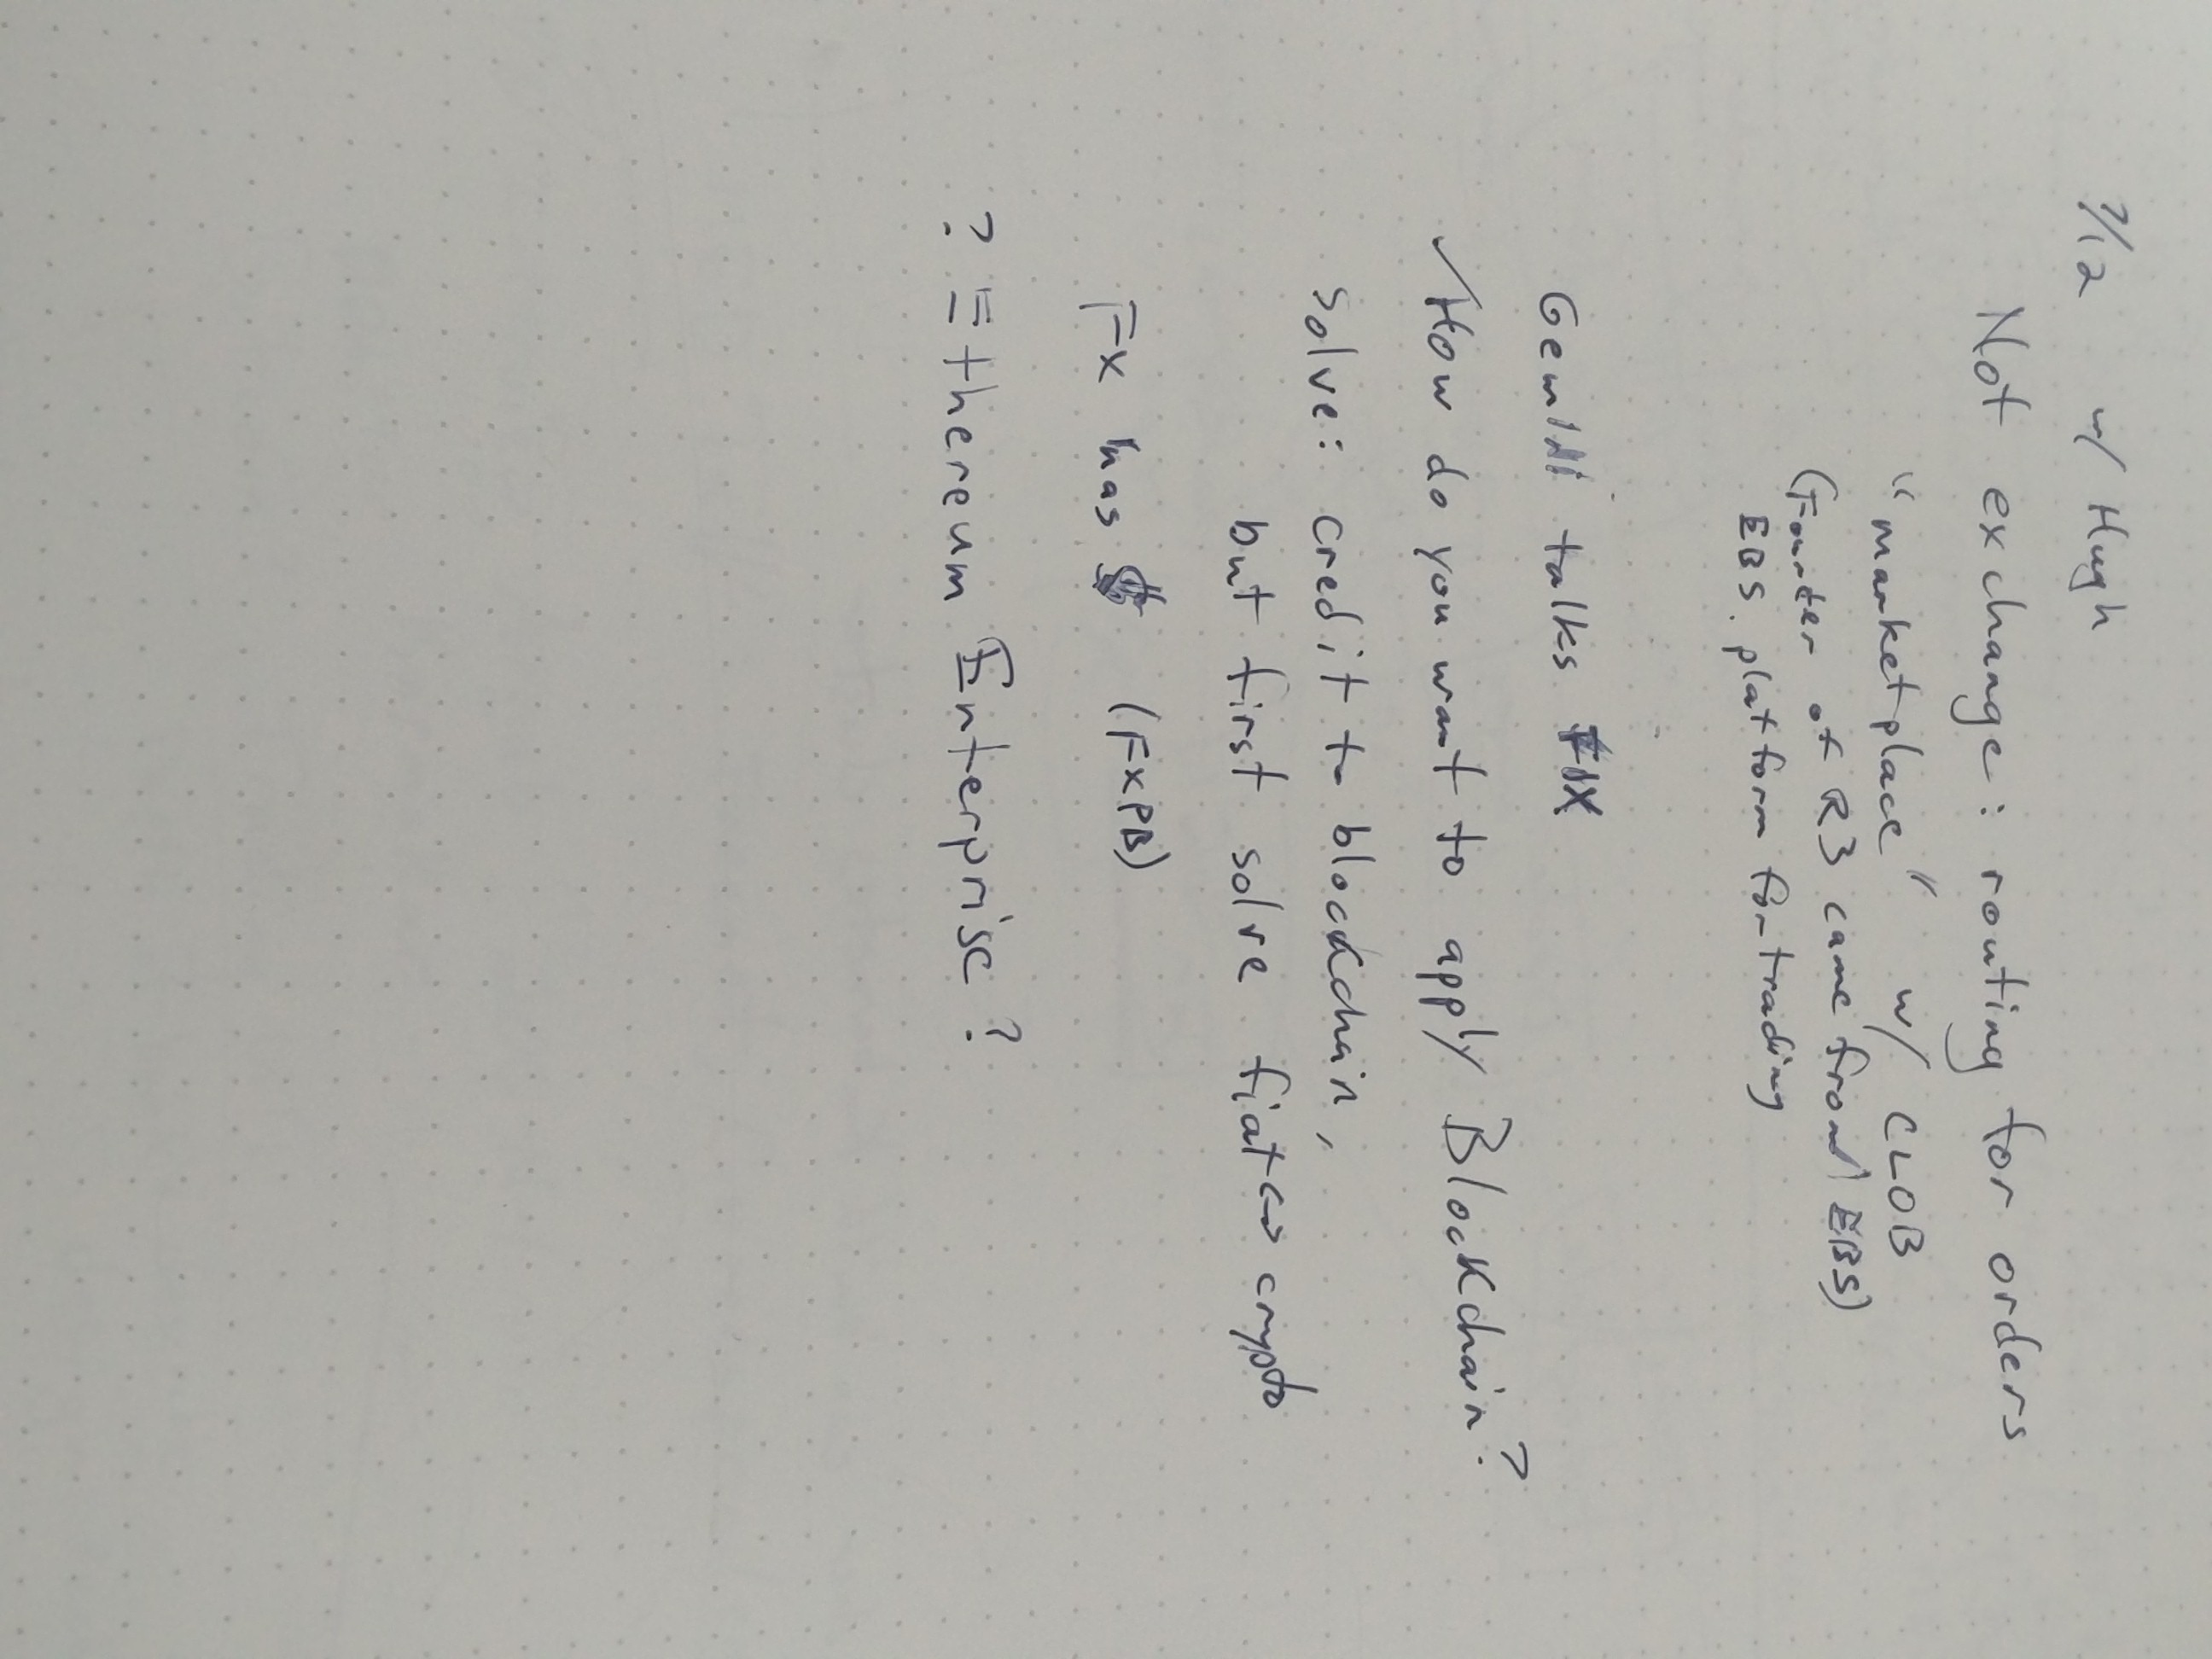 7/12 w/ Hugh
Not exchange: routing for orders
"marketplace" w/ CLOB
(Founder of R3 came from EBS)
EBS. platform for trading
Gemini talks FIX
✓How do you want to apply Blockchain?
solve: credit to blockchain,
but first solve fiat ↔ crypto
FX has (FXPB)
? = Ethereum Enterprise?